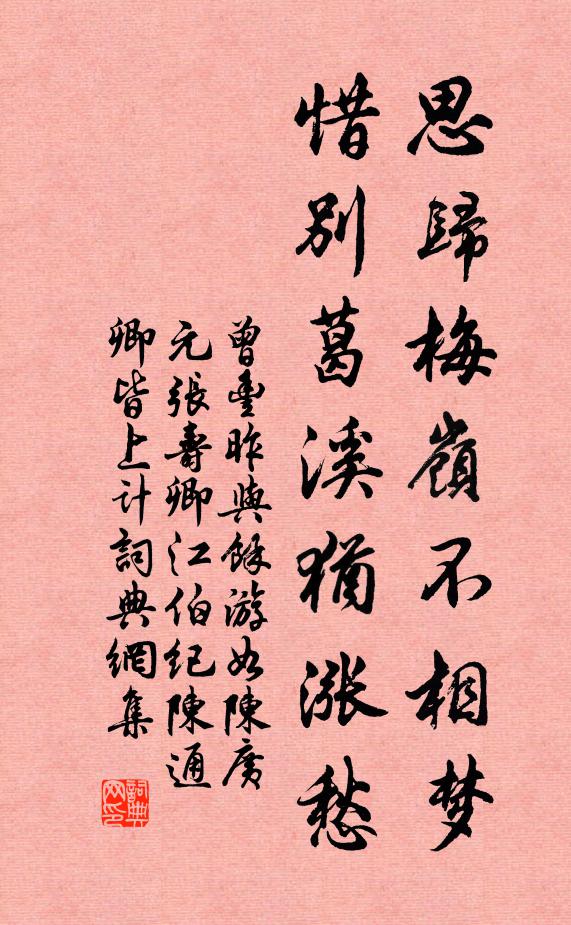 思歸梅嶺不相梦
惜别葛溪猶漲愁
曾豊昨與餘游如陳廣
元張壽卿江伯紀陳通
卿皆上计詞典網集
詞典网印